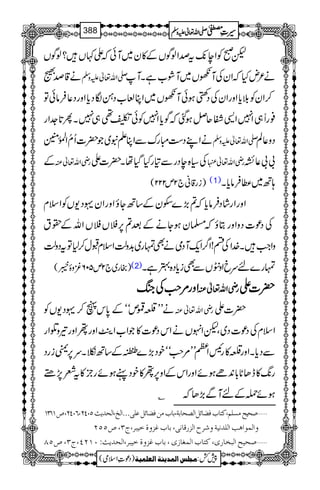 سیرتِ مصطفیٰ صلی اللہ تعالیٰ علیہ وسلم 388
لیکن صبح کو اچانک یہ صدا لوگوں کے کان میں آئی کہ علی کہاں ہیں؟ لوگوں
نے عرض کیا کہ ان کی آنکھوں میں آشوب ہے۔ آپ صلی اللہ تعالیٰ علیہ وسلم نے قاصد بھیج
کر ان کو بلایا اور ان کی دکھتی ہوئی آنکھوں میں اپنا لعاب دہن لگا دیا اور دعا فرمائی تو
فوراً ہی انہیں ایسی شفا حاصل ہو گئی کہ گویا انہیں کوئی تکلیف تھی ہی نہیں۔ پھر تاجدار
دو عالم صلی اللہ تعالیٰ علیہ وسلم نے اپنے دست مبارک سے اپنا علم نبوی جو حضرت اُم المؤمنین
بی بی عائشہ رضی اللہ تعالیٰ عنہا کی سیاہ چادر سے تیار کیا گیا تھا۔ حضرت علی رضی اللہ تعالیٰ عنہ کے
ہاتھ میں عطا فرمایا۔ (1) (زرقانی ج۲ ص۲۲۲)
اور ارشاد فرمایا کہ تم بڑے سکون کے ساتھ جاؤ اور ان یہودیوں کو اسلام
کی دعوت دو اور بتاؤ کہ مسلمان ہو جانے کے بعد تم پر فلاں فلاں اللہ کے حقوق
واجب ہیں۔ خدا کی قسم! اگر ایک آدمی نے بھی تمہاری بدولت اسلام قبول کر لیا تو یہ دولت
تمہارے لئے سرخ اونٹوں سے بھی زیادہ بہتر ہے۔ (2) (بخاری ج۲ ص۶۰۵ غزوۂ خیبر)
حضرت علی رضی اللہ تعالیٰ عنہ اور مرحب کی جنگ
حضرت علی رضی اللہ تعالیٰ عنہ نے ’’قلعہ قموص‘‘ کے پاس پہنچ کر یہودیوں کو
اسلام کی دعوت دی، لیکن انہوں نے اس دعوت کا جواب اینٹ اور پتھر اور تیر و تلوار
سے دیا۔ اور قلعہ کا رئیسِ اعظم ’’مرحب‘‘ خود بڑے طنطنہ کے ساتھ نکلا۔ سر پر یمنی زرد
رنگ کا ڈھاٹا باندھے ہوئے اور اس کے اوپر پتھر کا خود پہنے ہوئے رجز کا یہ شعر پڑھتے
ہوئے حملہ کے لئے آگے بڑھا کہ
1 ......صحیح مسلم، کتاب فضائل الصحابة، باب من فضائل علی... الخ، الحدیث: ۲۴۰۵، ۲۴۰۶، ص ۱۳۱۱
والمواھب اللدنیة و شرح الزرقانی، باب غزوة خیبر، ج ۳، ص ۲۵۵
2 ......صحیح البخاری، کتاب المغازی، باب غزوة خیبر، الحدیث: ۴۲۱۰، ج ۳، ص ۸۵
پیش کش: مجلس المدینة العلمیة (دعوتِ اسلامی)